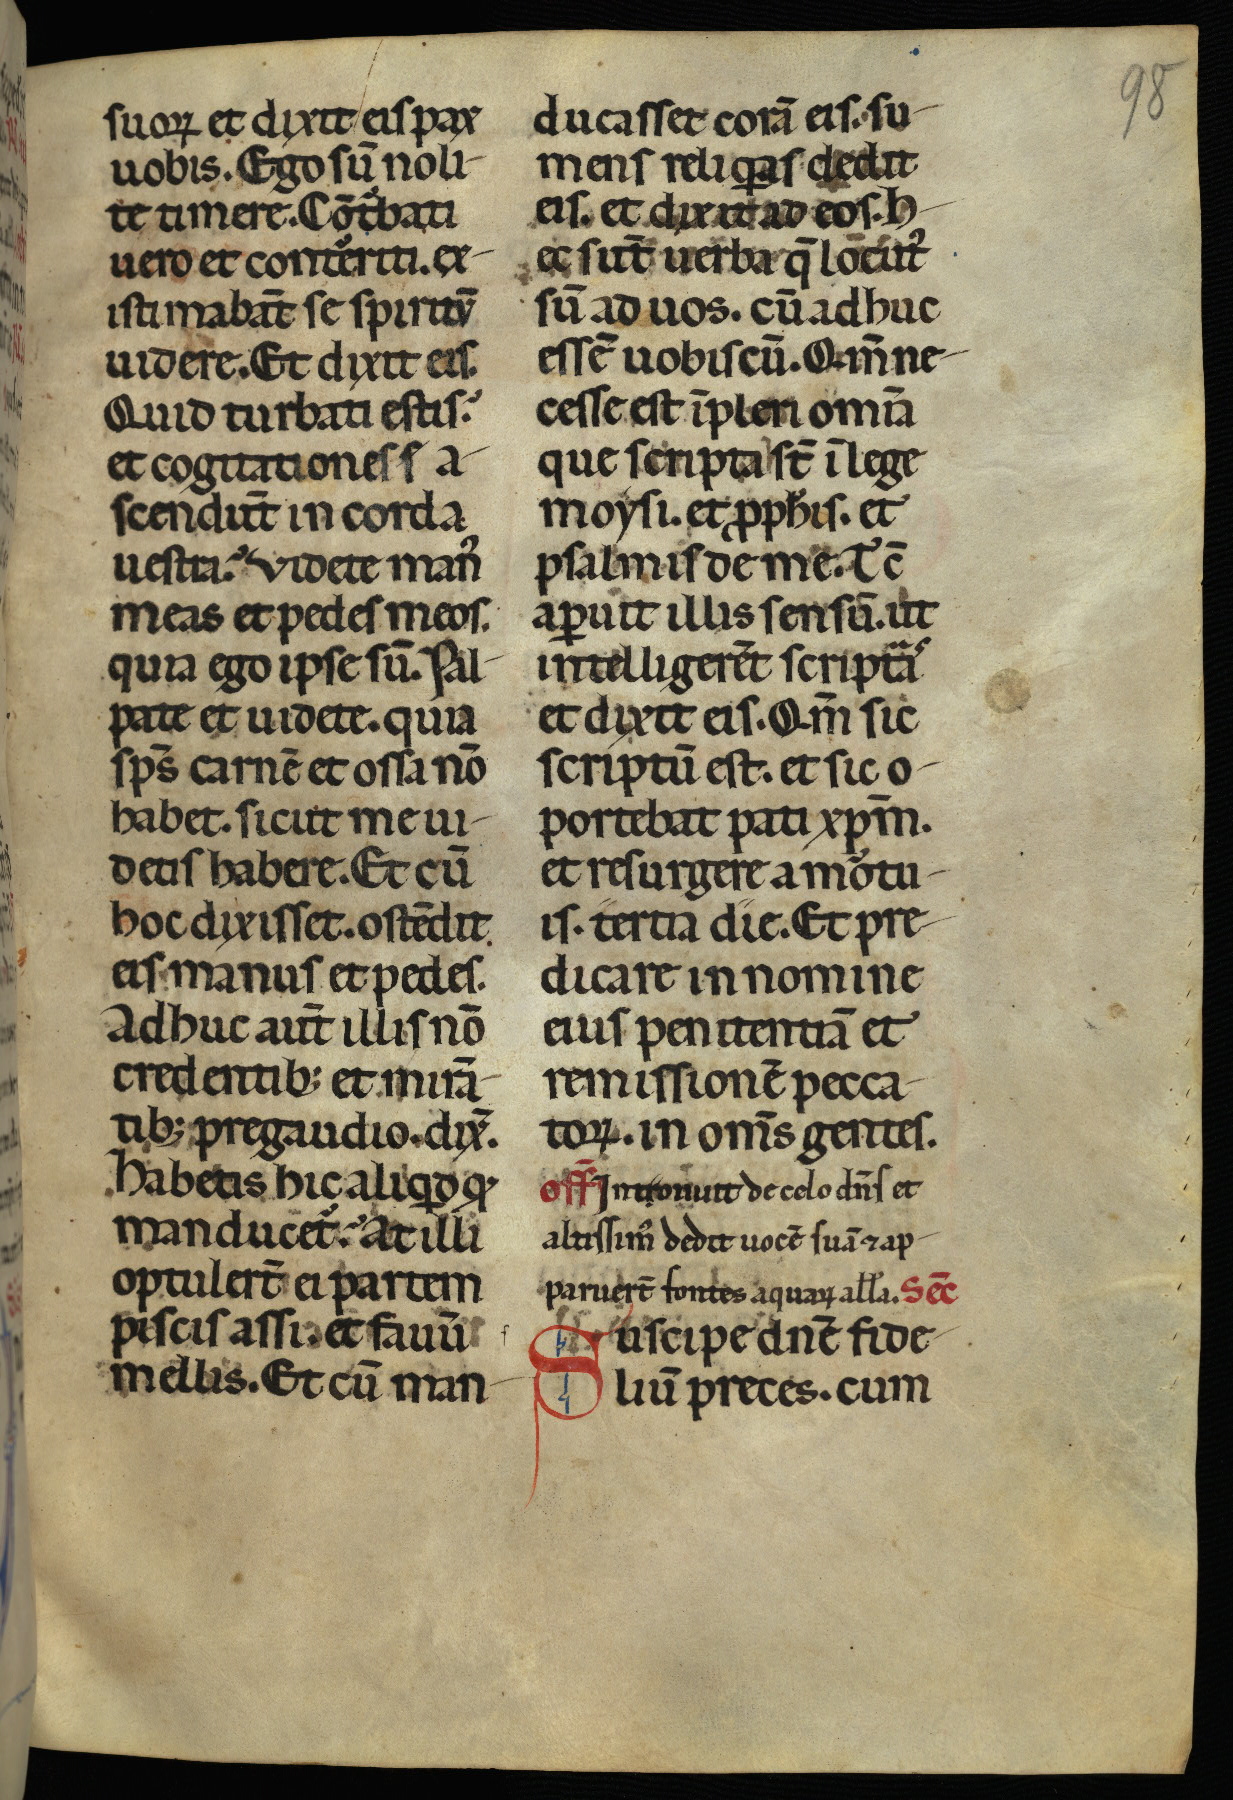 98
suoꝝ et dixit eis pax
uobis. Ego sū noli-
te timere. Cōt᷒bati
uero et cont᷒riti. ex-
istimabāt se spiritū
uidere. Et dixit eis.
Quid turbati estis.
et cogitationes s a-
scendūt in corda
uestra. Videte man᷒
meas et pedes meos.
quia ego ipse sū. Pal-
pate et uidete. quia
sp̄s carnē et ossa nō
habet. sicut me ui-
detis habere. Et cū
hoc dixisset. ostēdit
eis manus et pedes.
Adhuc aūt illis nō
credentib; et mirā-
tib; pregaudio. dix̄.
Habetis hic aliqd qͥ
manducet᷒. At illi
optulerūt ei partem
piscis assi. et fauū
mellis. Et cū man-
ducasset corā eis. su-
mens reliqas dedit
eis. et dixit ad eos. h-
ec sūt uerba q̄ locut᷒
sū ad uos. cū adhuc
essē uobiscū. Qm̄ ne-
cesse est īpleri omīa
que scripta st̄ ī lege
moysi. et ꝓphis. et
psalmis de me. Tc̄
aꝑuit illis sensū. ut
intelligerēt scriptᷓas
et dixit eis. Qm̄ sic
scriptū est. et sic o-
portebat pati xp̄m.
et resurgere a mortu-
is. tertia die. Et pre-
dicare in nomine
eius penitentiā et
remissionē pecca-
toꝝ. in om̄s gentes.
off̄ Intonuit de celo dn̄s et
altissim᷒ dedit uocē suā ⁊ ap-
paruerūt fontes aquaꝝ all̄a. Sēc
Suscipe dn̄e fide-
liū preces. cum